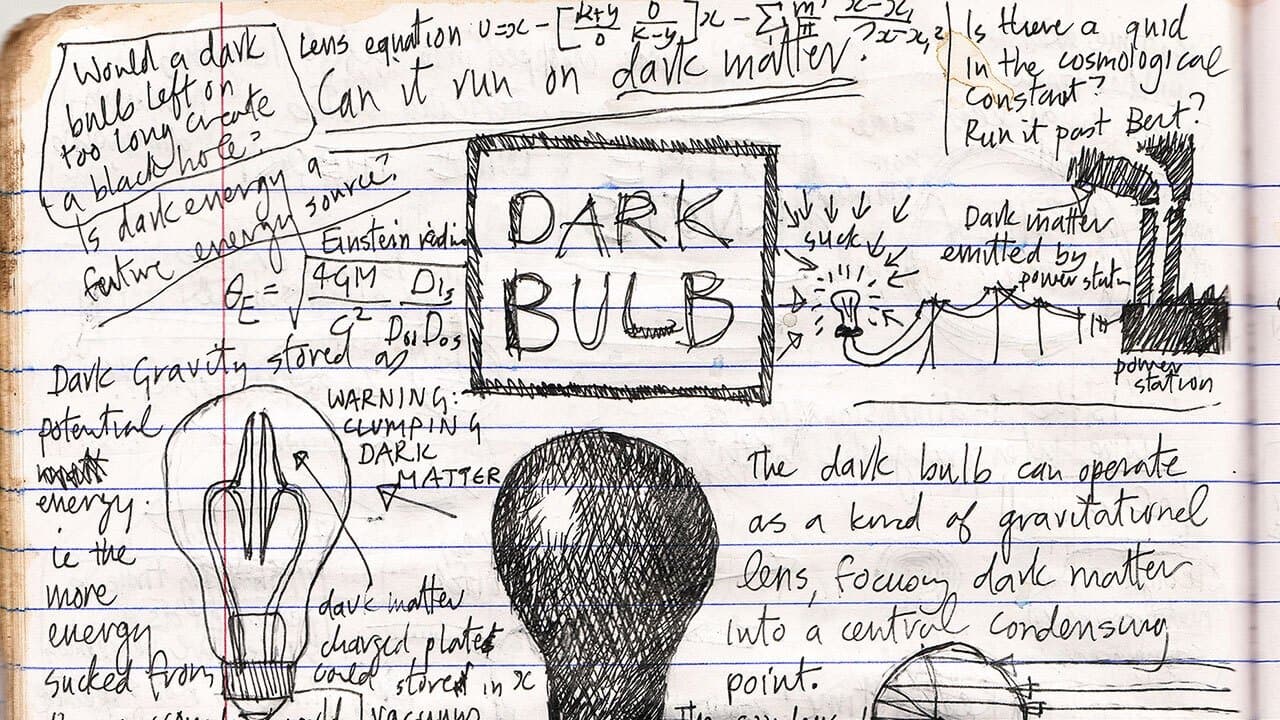 Would a dark
bulb left on
too long create
a black hole?
Lens equation
Can it run on dark matter.
Is there a quid
in the cosmological
constant?
Run it past Bert?
Is dark energy a
future energy source?
Einstein radius
θE = √ 4GM
C²
DARK
BULB
suck
Dark matter
emitted by
power station
power
station
Dark Gravity stored as
potential
energy.
ie the
more
energy
sucked from
WARNING:
CLUMPING
DARK
MATTER
dark matter
charged plates
could stored in x
vacuum
The dark bulb can operate
as a kind of gravitational
lens, focusing dark matter
into a central condensing
point.